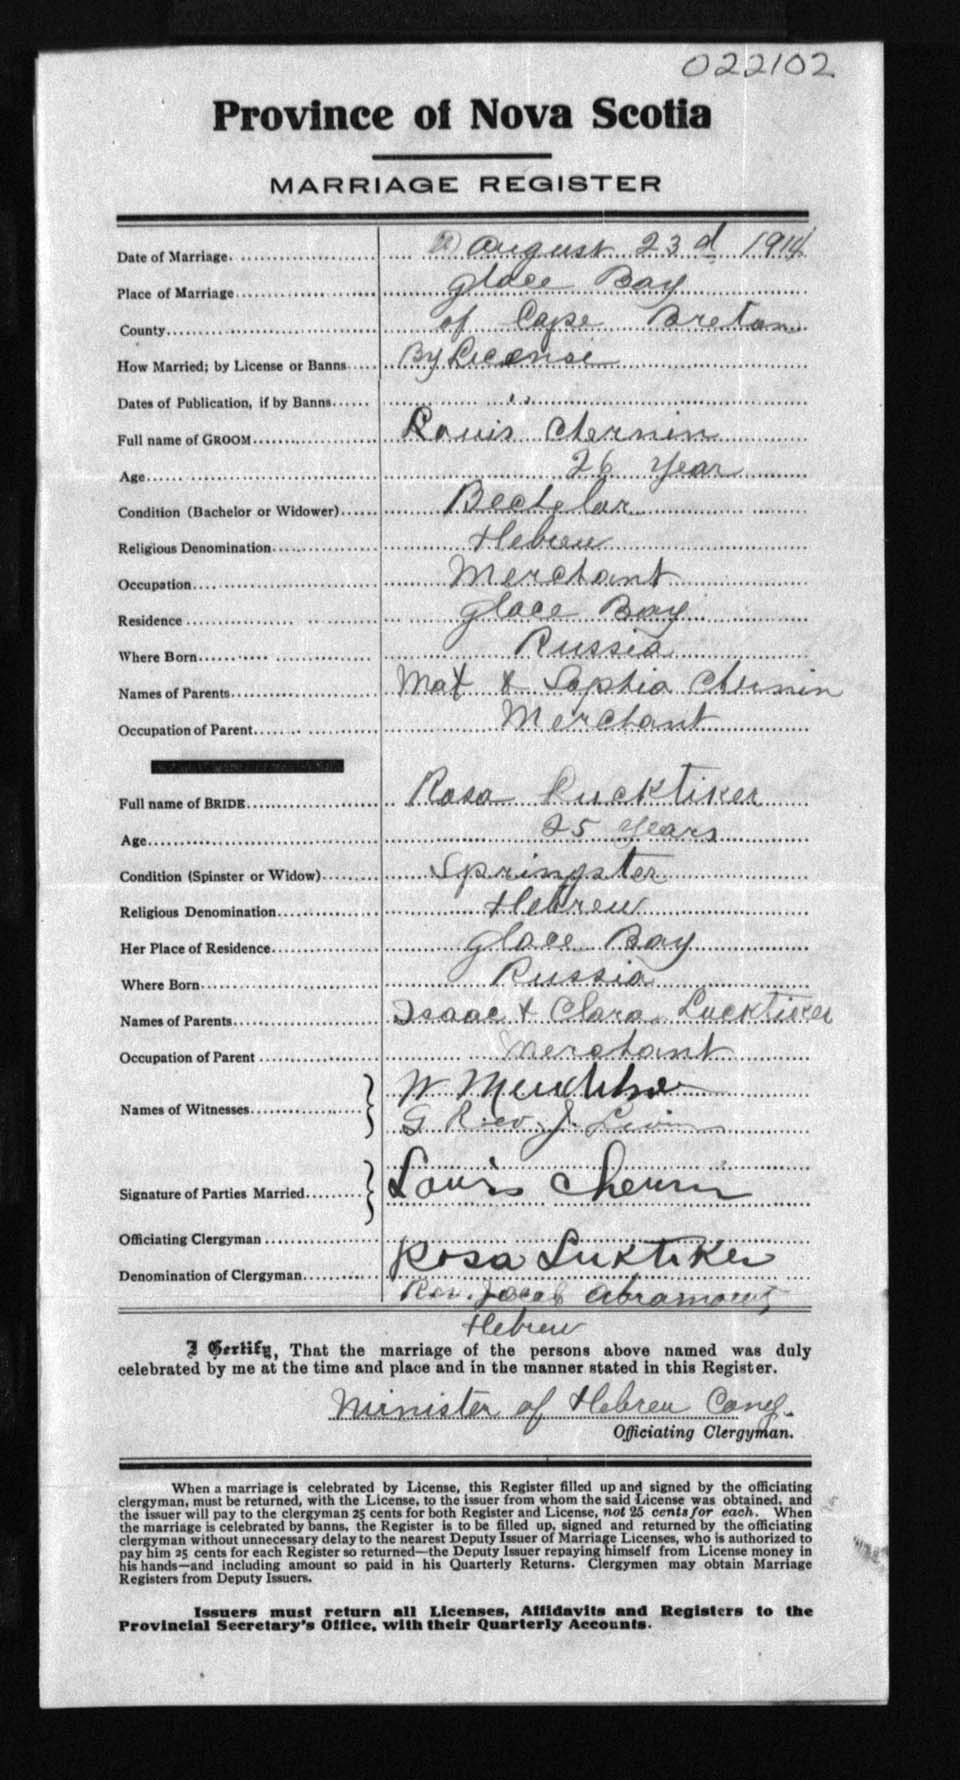 022102
Province of Nova Scotia
MARRIAGE REGISTER
Date of Marriage August 23d 1914
Place of Marriage Glace Bay
County of Cape Breton
How Married; by License or Banns By License
Dates of Publication, if by Banns " "
Full name of GROOM Louis Chernin
Age 26 year
Condition (Bachelor or Widower) Bechelar
Religious Denomination Hebrew
Occupation Merchant
Residence Glace Bay
Where Born Russia
Names of Parents Max & Sophia Chernin
Occupation of Parent Merchant
Full name of BRIDE Rosa Lucktiker
Age 25 years
Condition (Spinster or Widow) Springster
Religious Denomination Hebrew
Her Place of Residence Glace Bay
Where Born Russia
Names of Parents Isaac & Clara Lucktiker
Occupation of Parent Merchant
W
Names of Witnesses
Rev. J.
Signature of Parties Married Louis Chernin
Officiating Clergyman
Rosa Luktiker
Denomination of Clergyman
Rev. Jacob
Hebrew
I Certify, That the marriage of the persons above named was duly
celebrated by me at the time and place and in the manner stated in this Register.
Minister of Hebrew Cong.
Officiating Clergyman.
When a marriage is celebrated by License, this Register filled up and signed by the officiating
clergyman, must be returned, with the License, to the issuer from whom the said License was obtained, and
the issuer will pay to the clergyman 25 cents for both Register and License, not 25 cents for each. When
the marriage is celebrated by banns, the Register is to be filled up, signed and returned by the officiating
clergyman without unnecessary delay to the nearest Deputy Issuer of Marriage Licenses, who is authorized to
pay him 25 cents for each Register so returned—the Deputy Issuer repaying himself from License money in
his hands—and including amount so paid in his Quarterly Returns. Clergymen may obtain Marriage
Registers from Deputy Issuers.
Issuers must return all Licenses, Affidavits and Registers to the
Provincial Secretary's Office, with their Quarterly Accounts.